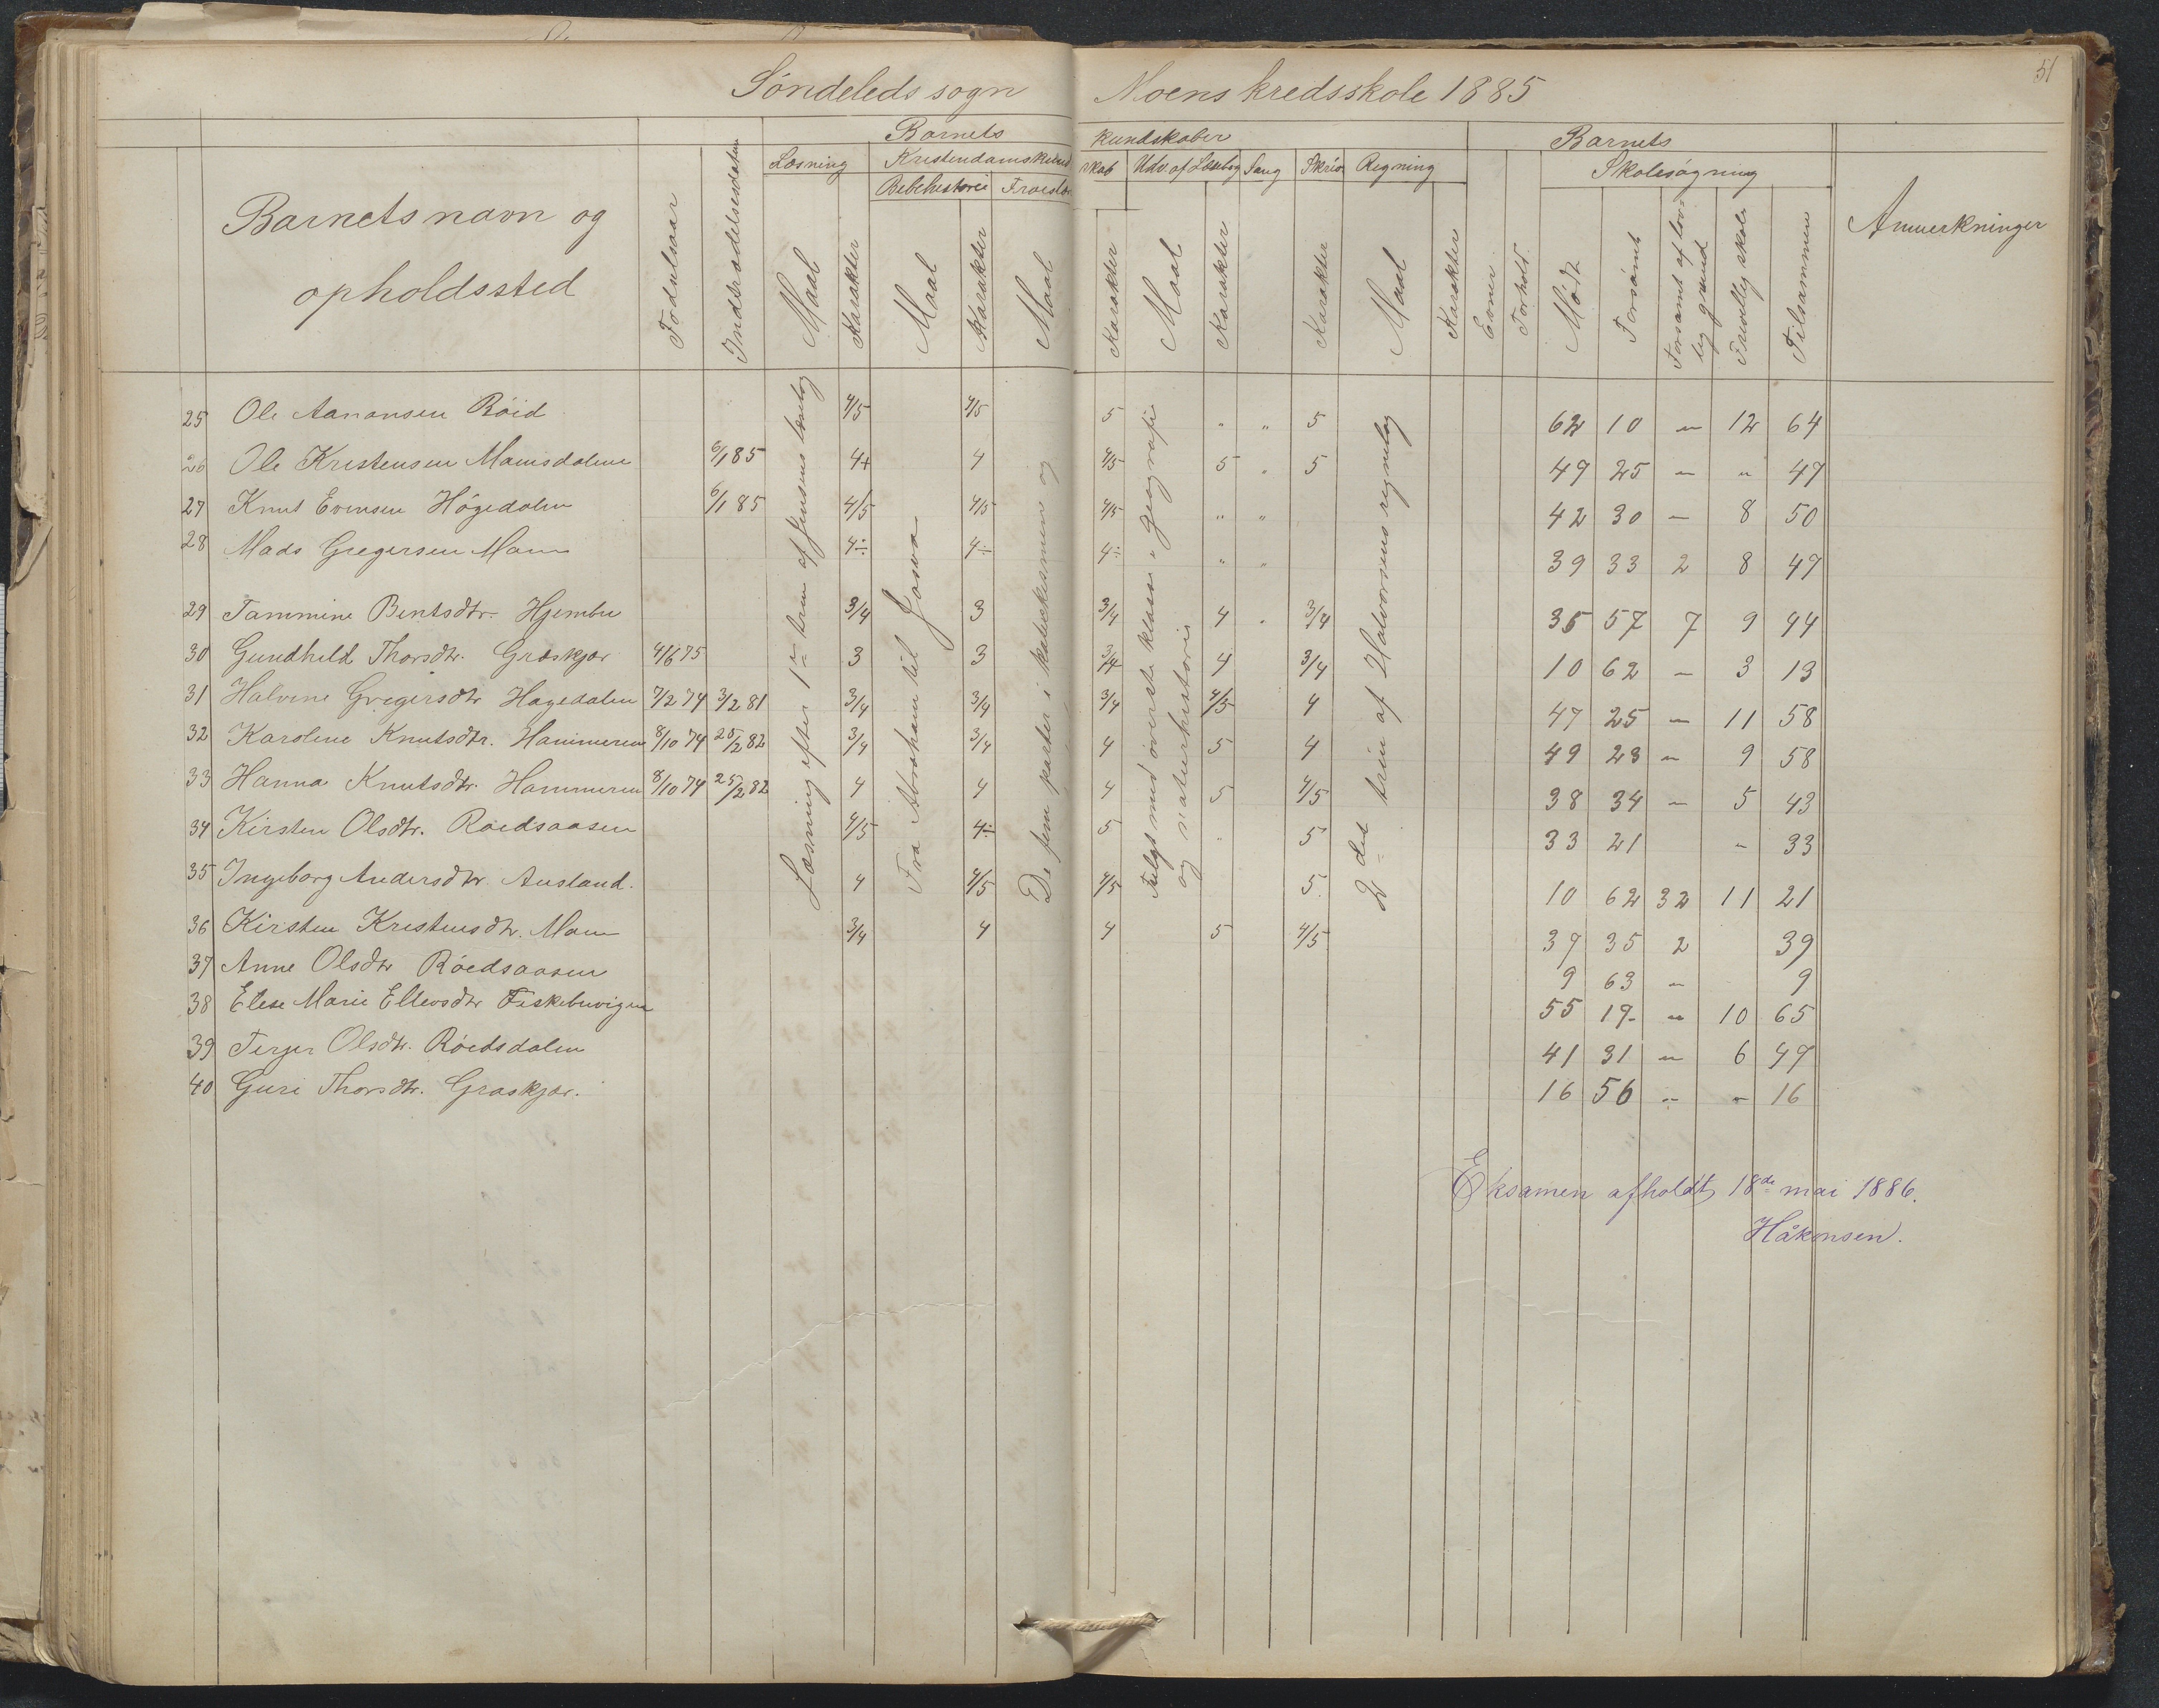 51
Søndeleds sogn Moens kredsskole 1885
Barnets navn og opholdssted
Fødselsaar
Indtrædelsesdatum
Barnets kundskaber
Læsning
Kristendomskundskab
Udv. af Læsebog
Sang
Skriv.
Regning
Bibelhistorie
Troeslære
Maal Karakter Maal Karakter Maal Karakter Maal Karakter Karakter Maal Karakter
Evner
Forhold
Barnets Skolesøgning
Mødt
Forsømt
Forsømt af lovlig grund
Frivillig skole
Tilsammen
Anmerkninger
Læsning efter 1ste trin af Jensens læsebog
Fra Abraham til Josva
De fem parter i katekismen og
Fulgt med øverste klasse i geografi og naturhistorie
2det trin af Halvorsens regnebog
25 Ole Aanonsen Röid 4/5 4/5 5 " " 5 62 10 — 12 64
26 Ole Kristensen Mamsdalen 6/1 85 4+ 4 4/5 5 " 5 49 25 — " 49
27 Knut Evensen Høgedalen 6/1 85 4/5 4/5 4/5 " " 42 30 — 8 50
28 Mads Gregersen Moen 4÷ 4÷ 4÷ " " 39 33 2 8 47
29 Tammine Bentsdtr. Hjembu 3/4 3 3/4 4 " 3/4 35 57 7 9 44
30 Gundhild Thorsdtr. Græskjær 4/6 75 3 3 3/4 4 3/4 10 62 — 3 13
31 Halvine Gregersdtr Høgedalen 7/2 74 3/2 81 3/4 3/4 3/4 4/5 4 47 25 — 11 58
32 Karoline Knutsdtr. Hammeren 8/10 74 25/2 82 3/4 3/4 4 5 4 49 23 — 9 58
33 Hanna Knutsdtr. Hammeren 8/10 74 25/2 82 4 4 4 5 4/5 38 34 — 5 43
34 Kirsten Olsdtr. Røedsaasen 4/5 4÷ 5 " 5 33 21 " 33
35 Ingeborg Andersdtr. Ausland. 4 4/5 4/5 5 10 62 32 11 21
36 Kirsten Kristensdtr. Moen 3/4 4 4 5 4/5 39 35 2 39
37 Anne Olsdtr Röedsaasen 9 63 — 9
38 Elise Marie Ellevsdtr Fiskebuvigen 55 19 — 10 65
39 Terjer Olsdtr. Röedsdalen 41 31 — 6 47
40 Guri Thorsdtr. Græskjær. 16 56 — — 16
Eksamen afholdt 18de mai 1886.
Håkonsen.